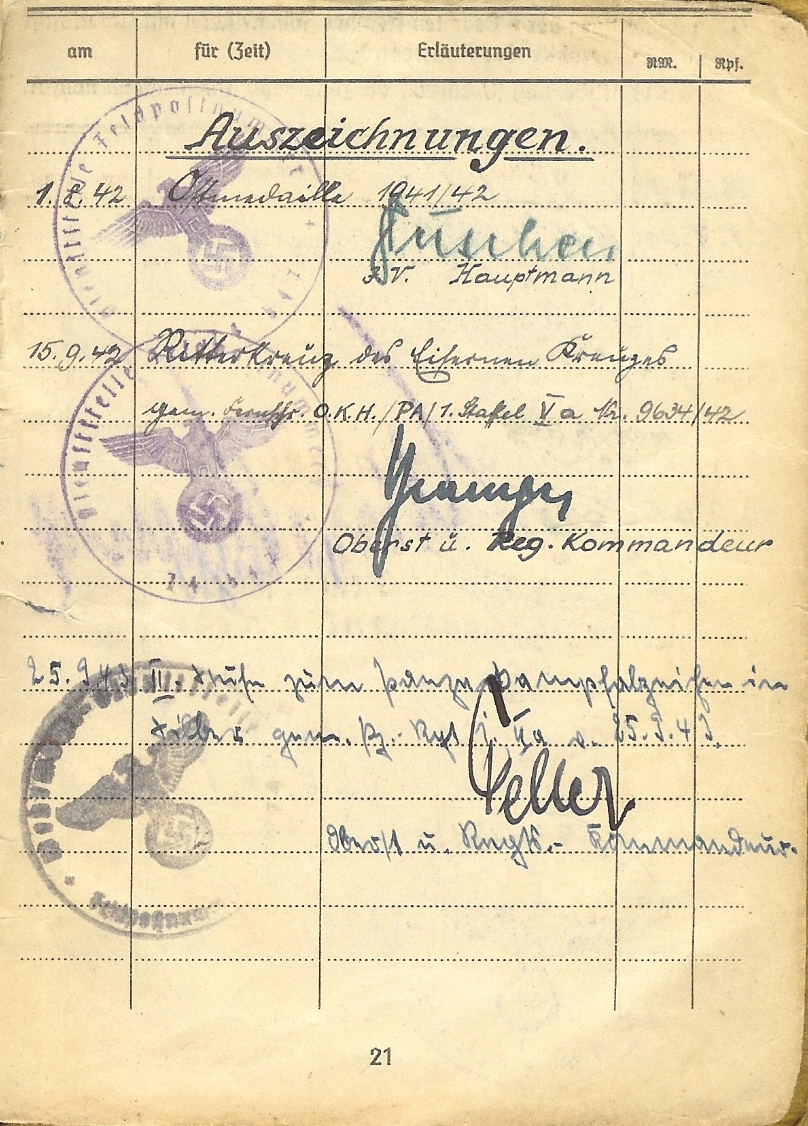 am für (Zeit) Erläuterungen RM. Rpf.
Dienststelle Feldpostnummer
Auszeichnungen.
1.8.42 Ostmedaille 1941/42
I.V. Hauptmann
15.9.42 Ritterkreuz des Eisernen Kreuzes
Dienststelle
gem. Fernschr. O.K.H./PA/1. Staffel V a Nr. 9634/42
Oberst u. Reg. Kommandeur
25.9.43 II. Stufe zum Panzerkampfabzeichen in
Silber gem. Pz.-Rgt IIa v. 25.9.43.
Oberst u. Rngts.- Kommandeur.
Feldpostnummer
21